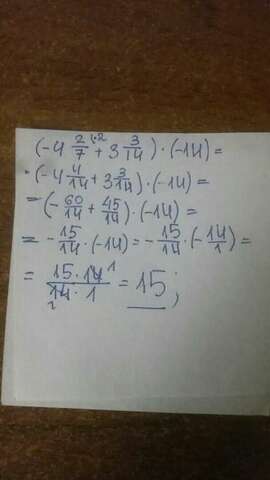 (-4 2/7 ·2 + 3 3/14) · (-14) =
· (-4 4/14 + 3 3/14) · (-14) =
= (- 60/14 + 45/14) · (-14) =
= - 15/14 · (-14) = - 15/14 · (- 14/1) =
= 15 · 14 1 / 14 · 1 1 = 15;